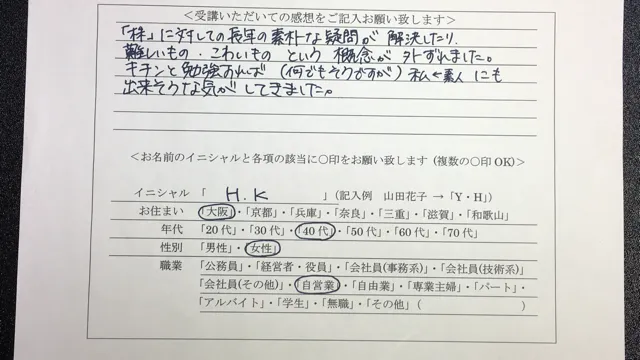 <受講いただいての感想をご記入お願い致します>
「株」に対しての長年の素朴な疑問が 解決したり、
難しいもの・こわいもの という 概念が 外ずれました。
キチンと勉強すれば (何でもそうですが) 私ら素人 にも
出来そうな気が してきました。
<お名前のイニシャルと各項の該当に〇印をお願い致します (複数の〇印 OK)>
イニシャル 「 H.K 」 (記入例 山田花子 → 「Y・H」)
お住まい 「大阪」・「京都」・「兵庫」・「奈良」・「三重」・「滋賀」・「和歌山」
年代 「20代」・「30代」・「40代」・「50代」・「60代」・「70代」
性別 「男性」・「女性」
職業 「公務員」・「経営者・役員」・「会社員(事務系)」・「会社員(技術系)」
「会社員(その他)」・「自営業」・「自由業」・「専業主婦」・「パート」・
「アルバイト」・「学生」・「無職」・「その他」( )